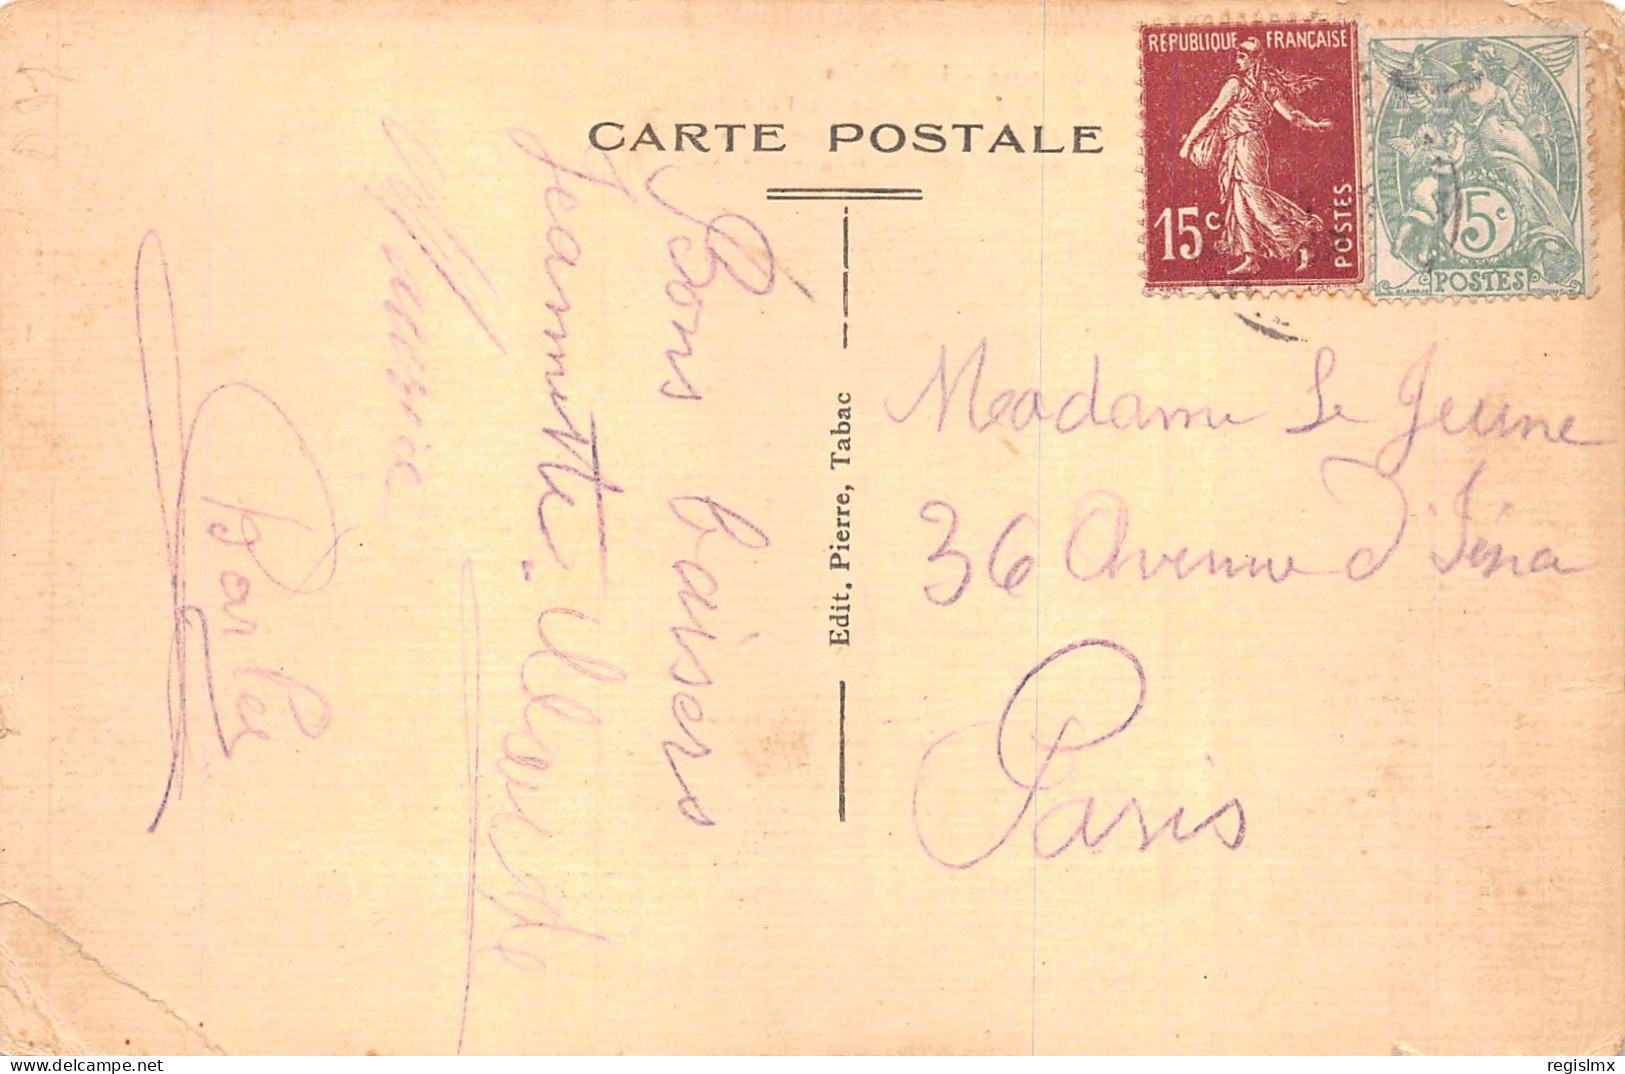 CARTE POSTALE
REPUBLIQUE FRANÇAISE
15c
POSTES
5c
POSTES
Edit. Pierre, Tabac
Bons baisers
Jeannette.
Madame Le Jeune
36 Avenue d'Iéna
Paris
www.delcampe.net
regislmx